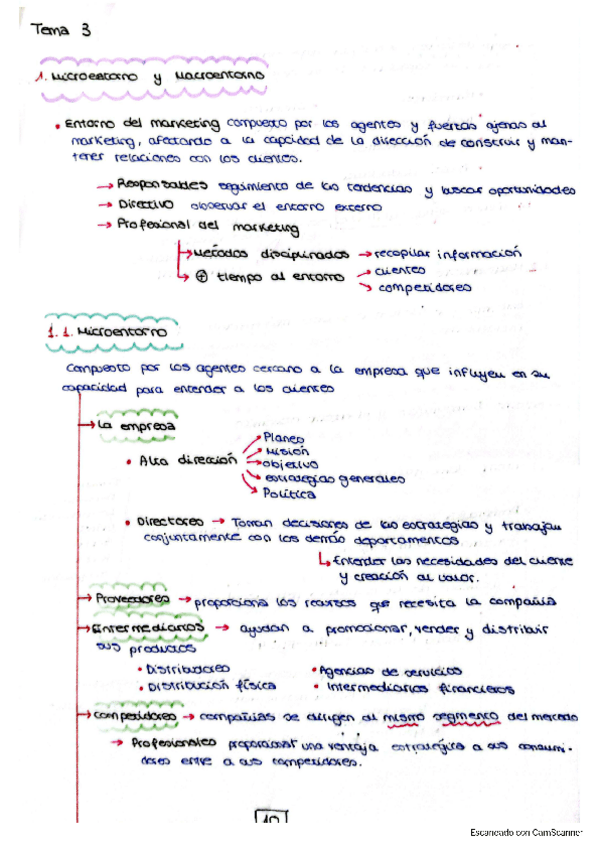 Tema 3
1. Microentorno y Macroentorno
• Entorno del marketing compuesto por los agentes y fuerzas ajenas al
marketing, afectando a la capacidad de la dirección de construir y man-
tener relaciones con los clientes.
→ Responsables seguimiento de las tendencias y buscar oportunidades
→ Directivo observar el entorno externo
→ Profesional del marketing
→ Métodos disciplinados → recopilar información
→ ⊕ tiempo al entorno → clientes
→ competidores
1.1. Microentorno
Compuesto por los agentes cercano a la empresa que influyen en su
capacidad para entender a los clientes
→ La empresa
• Alta dirección → Planes
→ Misión
→ objetivo
→ estrategias generales
→ Política
• Directores → Toman decisiones de las estrategias y trabajan
conjuntamente con los demás departamentos.
↳ Entender las necesidades del cliente
y creación al valor.
→ Proveedores → proporciona los recursos que necesita la compañía
→ Intermediarios → ayudan a promocionar, vender y distribuir
sus productos
• Distribuidores • Agencias de servicios
• Distribución física • Intermediarios financieros
→ Competidores → compañías se dirigen al mismo segmento del mercado
→ Profesionales proporcionar una ventaja estratégica a sus consumi-
dores entre a sus competidores.
Escaneado con CamScanner